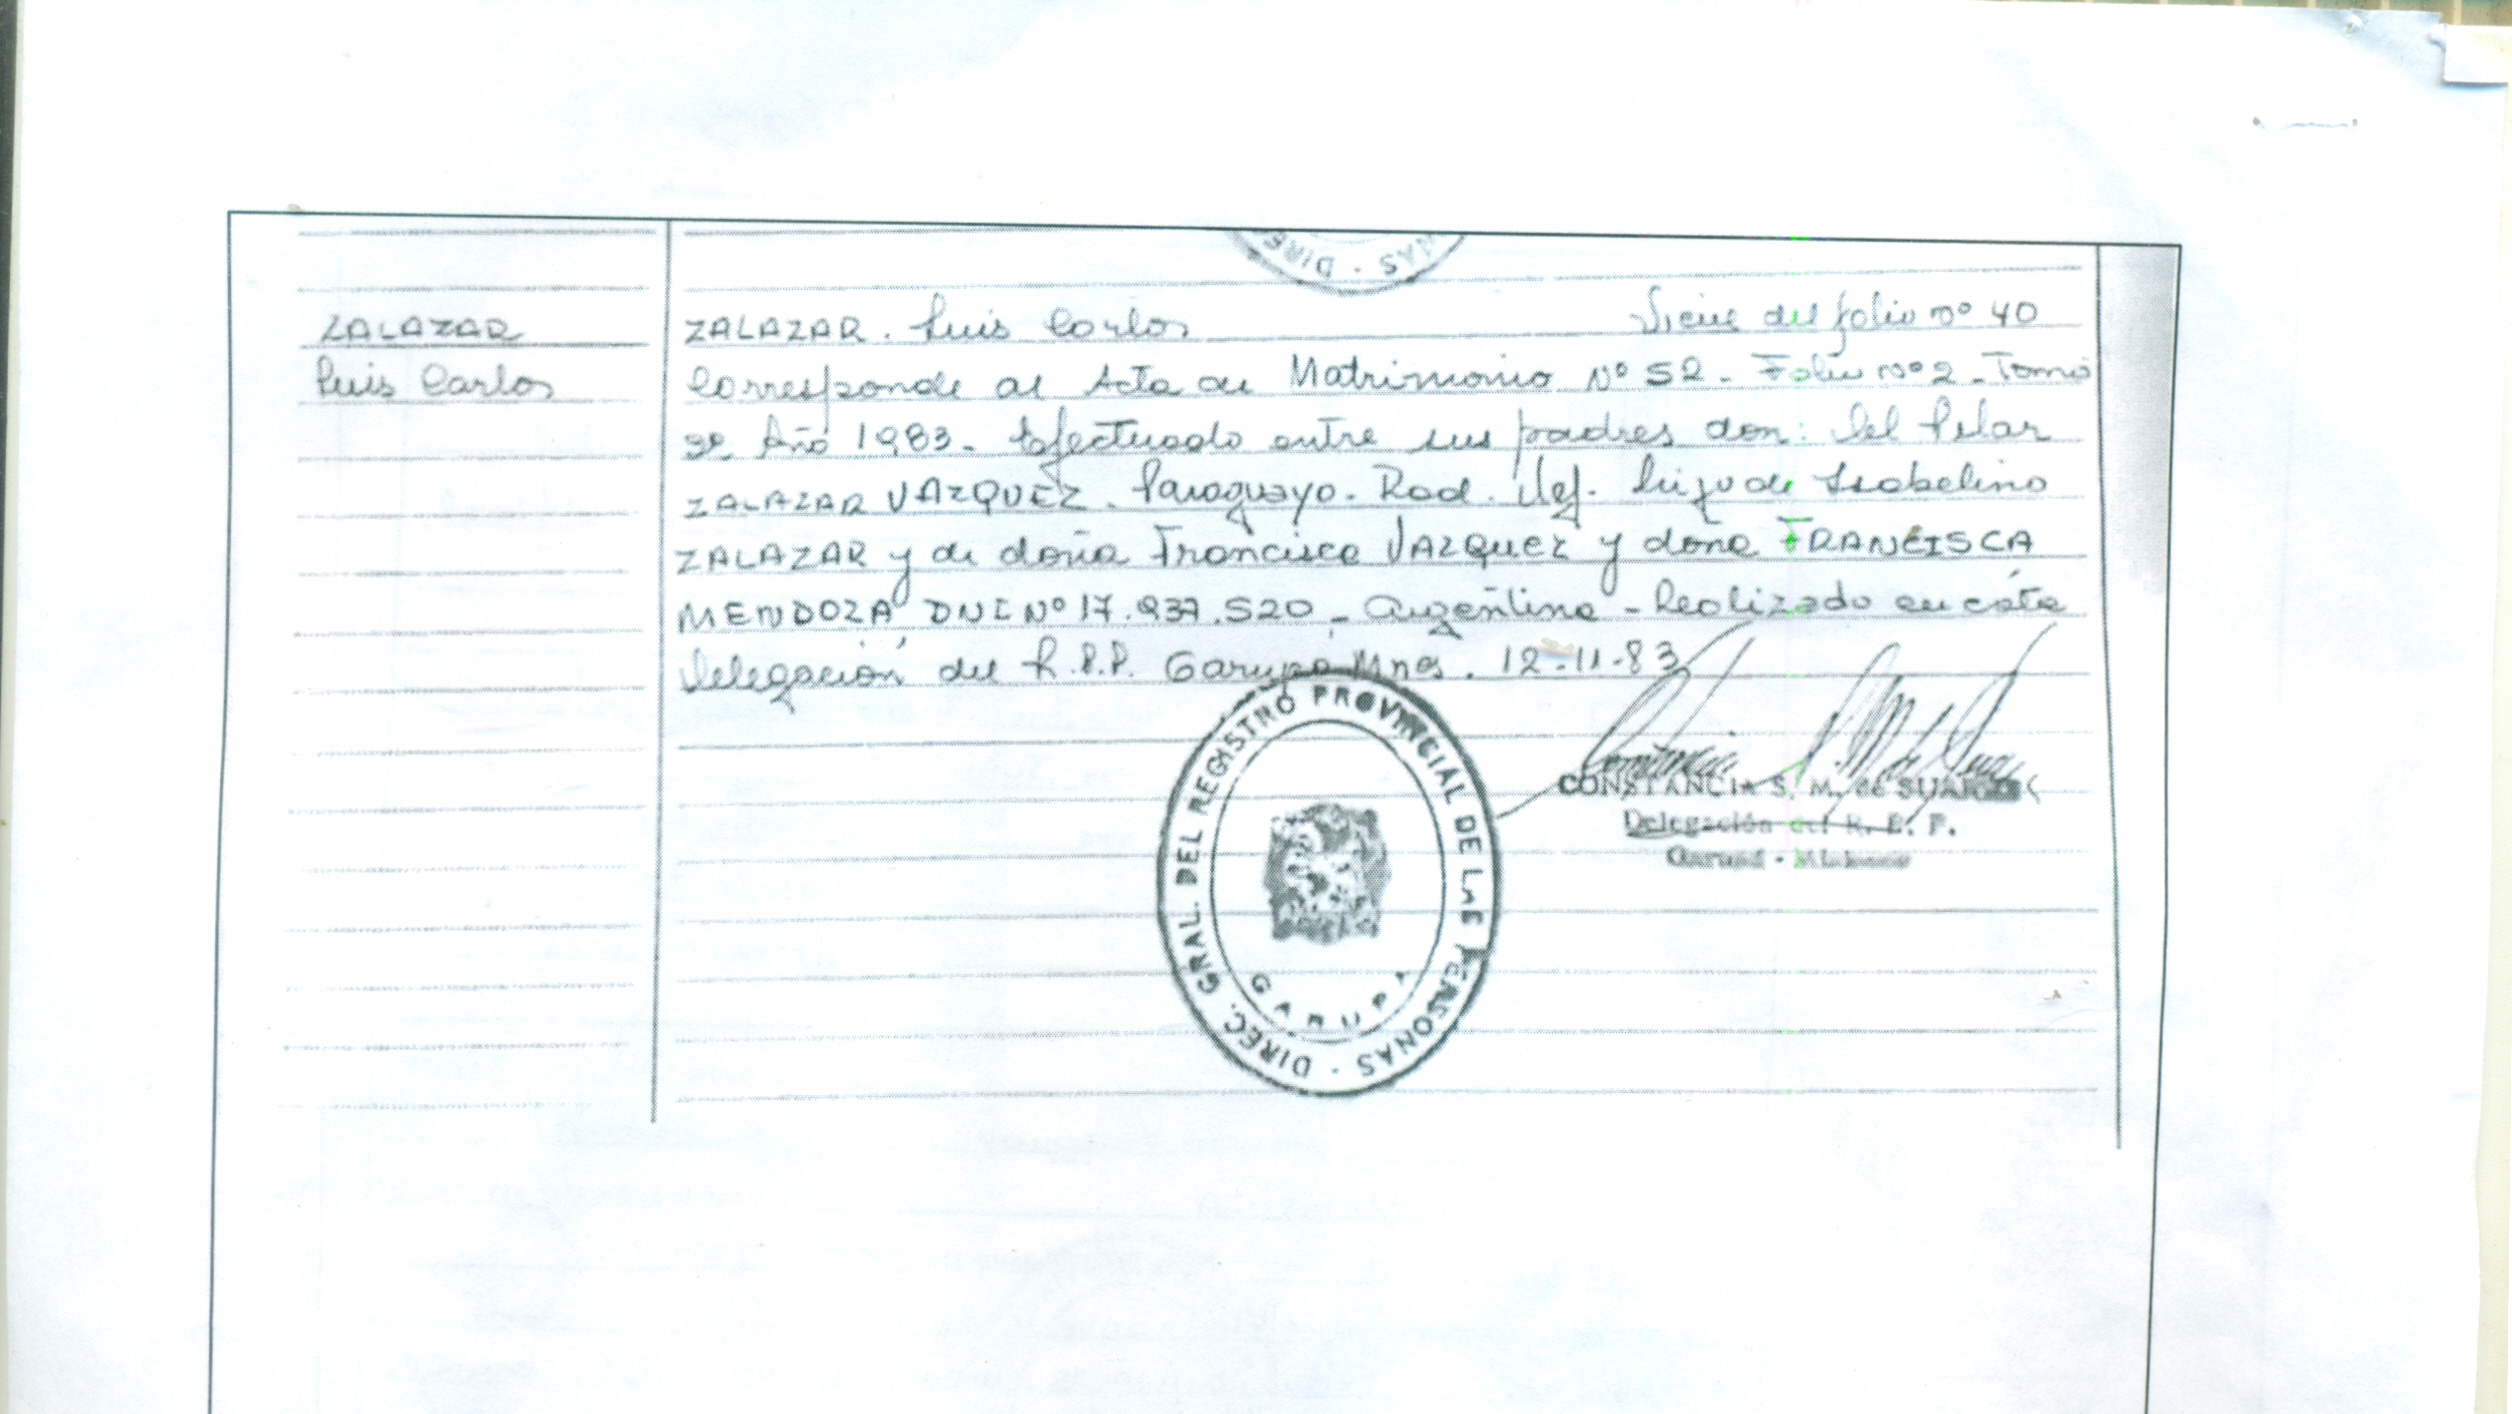 NAS - DIRE
ZALAZAR
Luis Carlos
ZALAZAR. Luis Carlos Viene del folio nº 40
Corresponde al Acta de Matrimonio Nº 52 - Folio nº 2 - Tomo
Año 1983 - Efectuado entre sus padres don: Del Pilar
ZALAZAR VAZQUEZ. Paraguayo. Rad. Def. hijo de Isabelino
ZALAZAR y de doña Francisca VAZQUEZ y doña FRANCISCA
MENDOZA DNI Nº 17.937.520 - Argentina - Realizado en ésta
Delegación del R.P.P. Garupa Mnes. 12-11-83
DIREC. GRAL. DEL REGISTRO PROVINCIAL DE LAS PERSONAS -
GARUPA
CONSTANCIA S. M. de SUAREZ
Delegación del R. P. P.
Garupá - Misiones